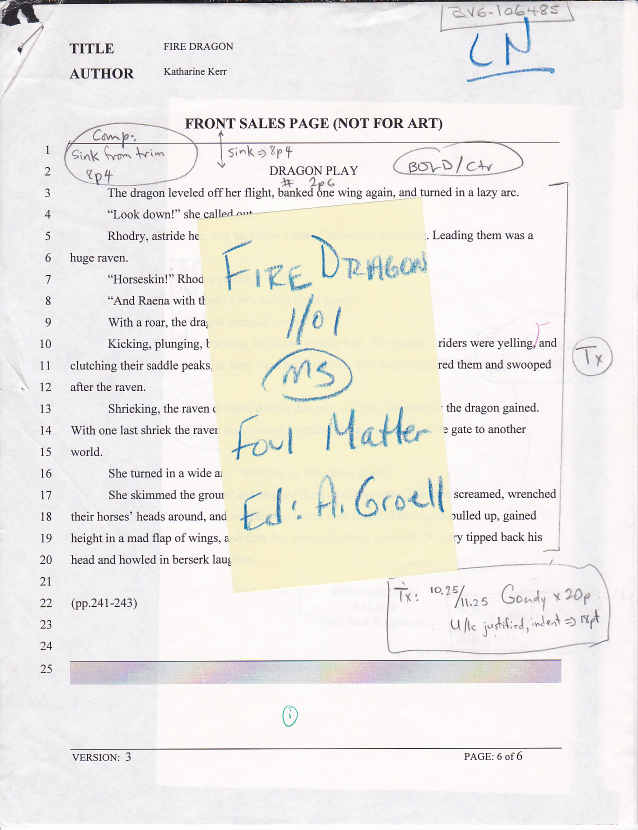 BV6-106485
LN
TITLE FIRE DRAGON
AUTHOR Katharine Kerr
FRONT SALES PAGE (NOT FOR ART)
Comp:
Sink from trim
8p4
Sink ⇒ 8p4
BOLD/Ctr
1
2 DRAGON PLAY
# 2p6
3 The dragon leveled off her flight, banked one wing again, and turned in a lazy arc.
4 “Look down!” she called out.
5 Rhodry, astride he . Leading them was a
6 huge raven.
7 “Horseskin!” Rhod
8 “And Raena with th
9 With a roar, the dra
10 Kicking, plunging, b riders were yelling, and
11 clutching their saddle peaks, red them and swooped
12 after the raven.
13 Shrieking, the raven the dragon gained.
14 With one last shriek the raven e gate to another
15 world.
16 She turned in a wide a
17 She skimmed the ground screamed, wrenched
18 their horses’ heads around, and pulled up, gained
19 height in a mad flap of wings, a ry tipped back his
20 head and howled in berserk laug
21
22 (pp.241-243)
23
24
25
FIRE DRAGON
1/01
MS
Foul Matter
Ed: A. Groell
Tx
Tx: 10.25/11.25 Goudy x 20p
U/lc justified, indent ⇒ 18pt
i
VERSION: 3 PAGE: 6 of 6